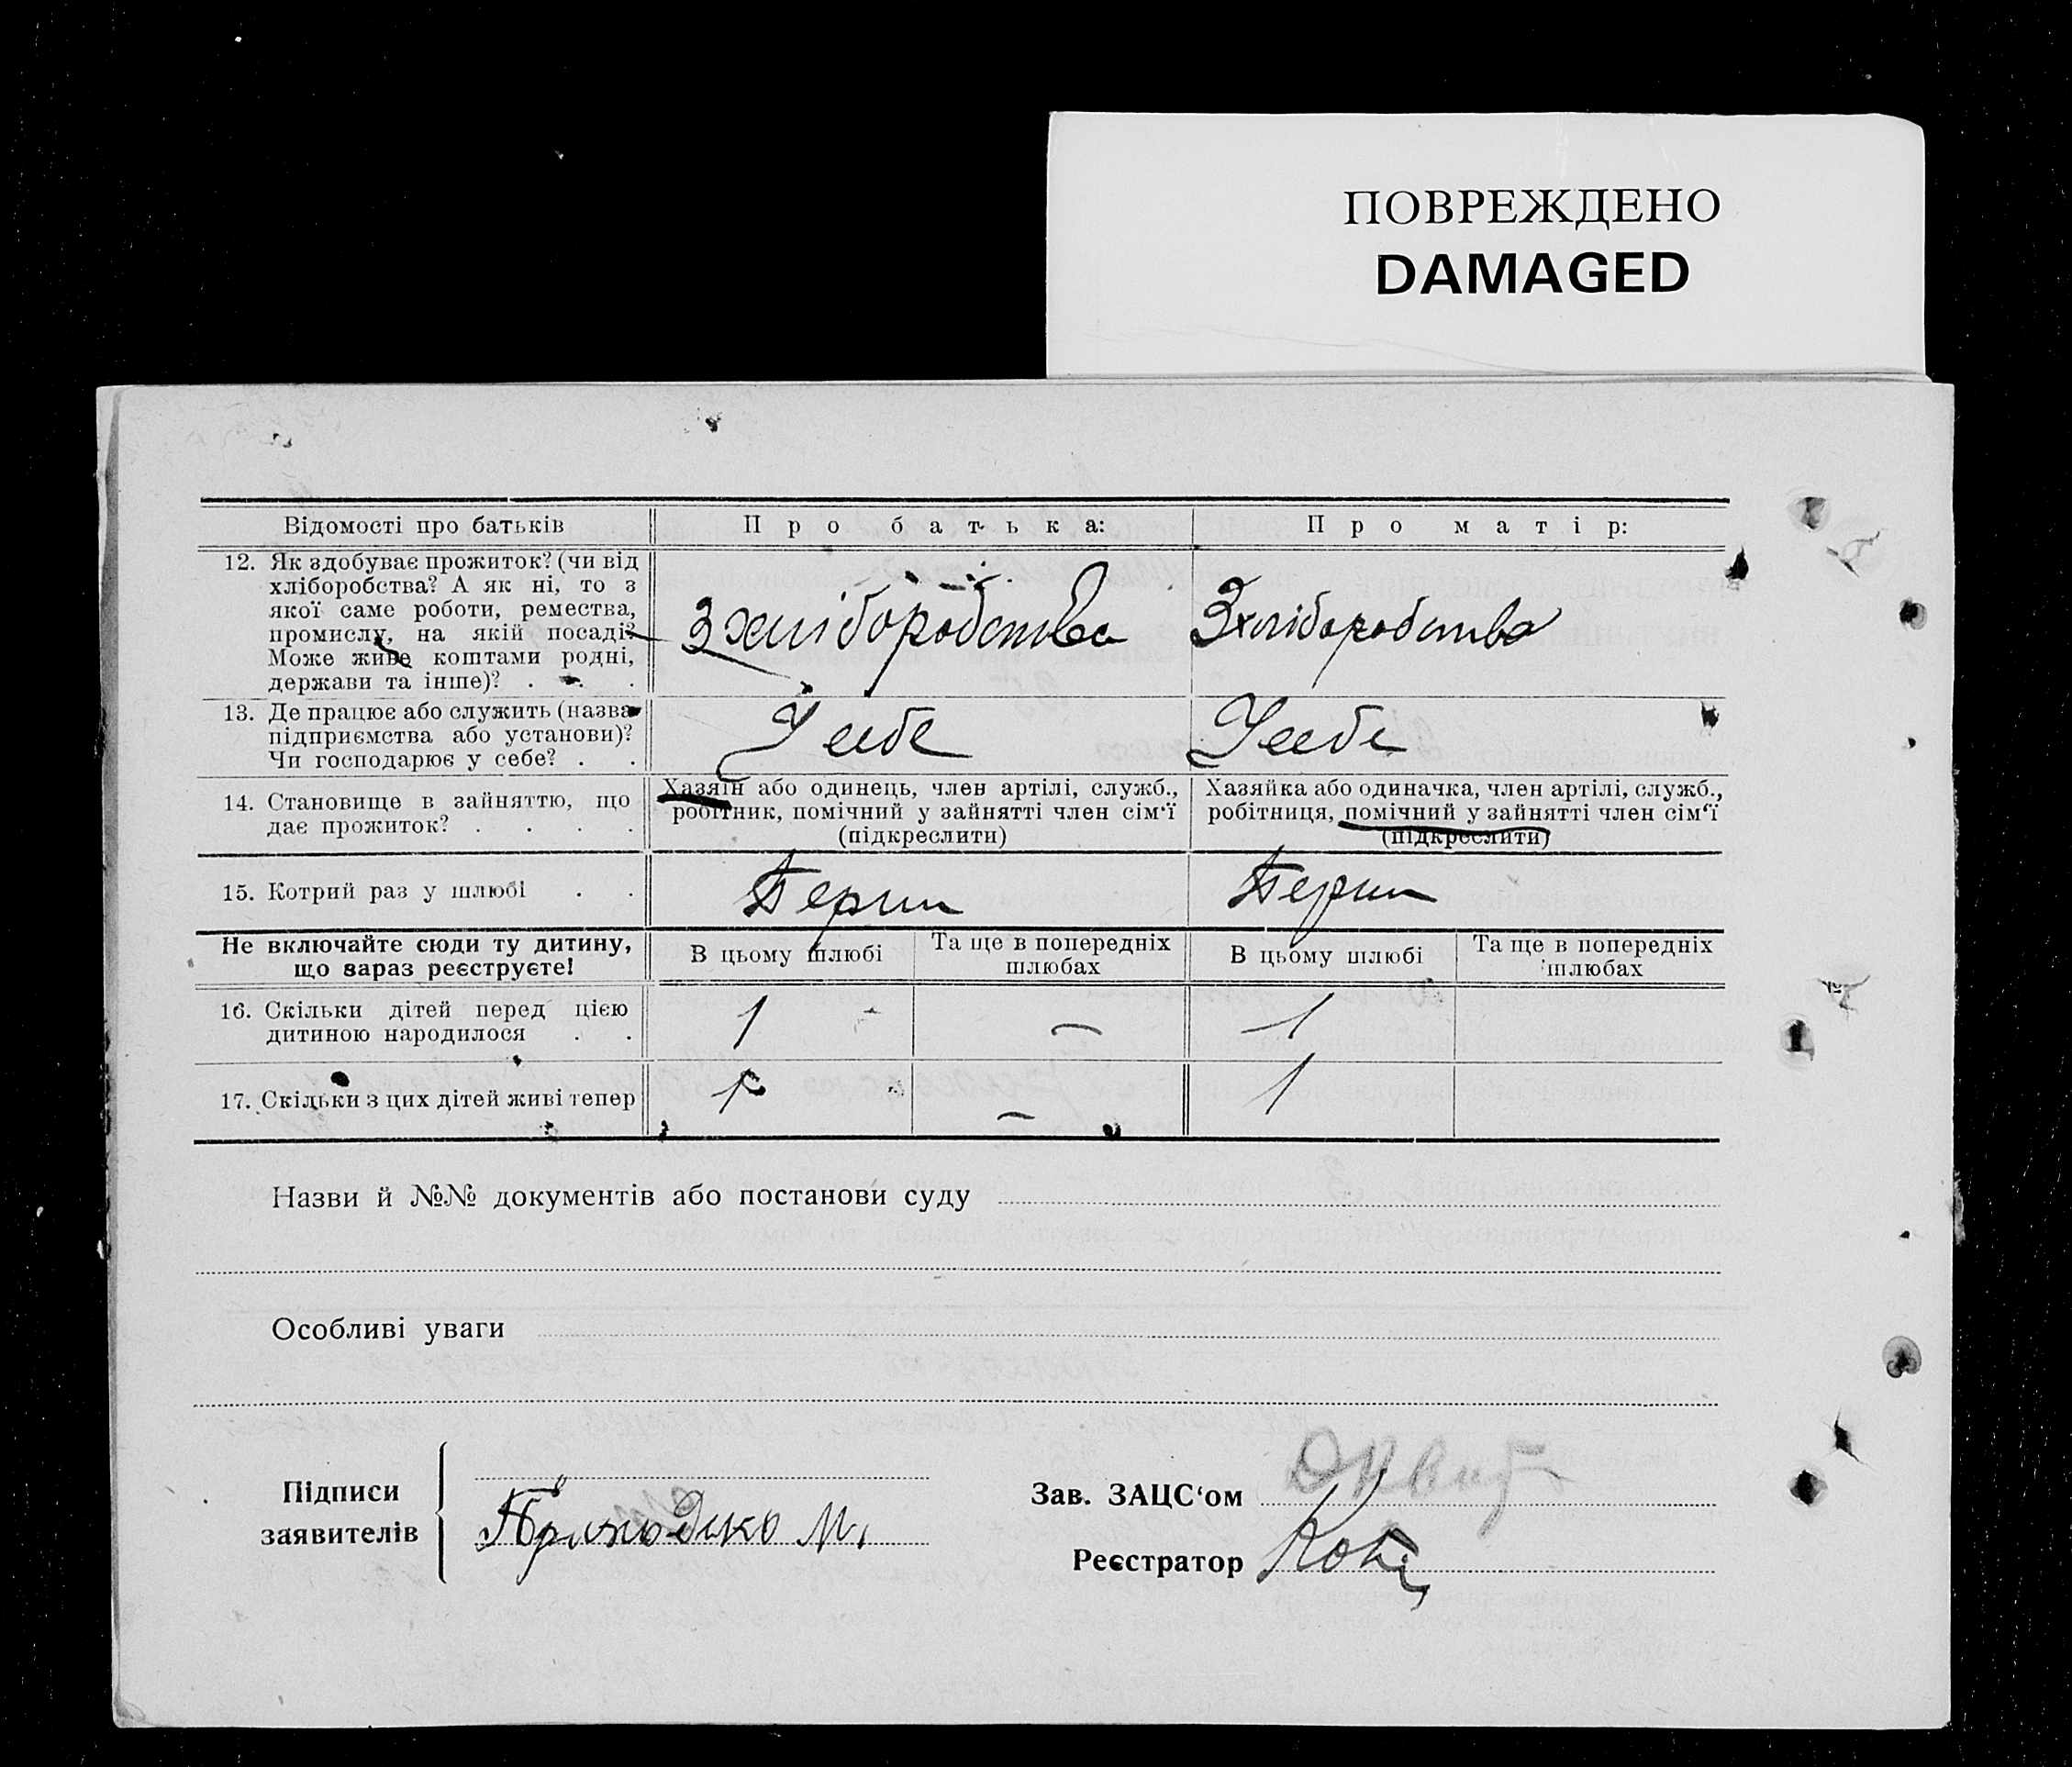 ПОВРЕЖДЕНО
DAMAGED
Відомості про батьків
Про батька:
Про матір:
12. Як здобуває прожиток? (чи від
хліборобства? А як ні, то з
якої саме роботи, ремества,
промислу, на якій посаді?
Може живе коштами родні,
держави та інше)? . . .
З хліборобства
З хліборобства
13. Де працює або служить (назва
підприємства або установи)?
Чи господарює у себе? . .
У себе
У себе
14. Становище в зайняттю, що
дає прожиток? . . . .
Хазяїн або одинець, член артілі, служб.,
робітник, помічний у зайнятті член сім'ї
(підкреслити)
Хазяйка або одиначка, член артілі, служб.,
робітниця, помічний у зайнятті член сім'ї
(підкреслити)
15. Котрий раз у шлюбі . .
Перш
Перш
Не включайте сюди ту дитину,
що зараз реєструєте!
В цьому шлюбі
Та ще в попередніх
шлюбах
В цьому шлюбі
Та ще в попередніх
шлюбах
16. Скільки дітей перед цією
дитиною народилося . .
1
—
1
17. Скільки з цих дітей живі тепер
1
—
1
Назви й №№ документів або постанови суду
Особливі уваги
Підписи
заявителів
Приходько М.
Зав. ЗАЦС'ом
Реєстратор